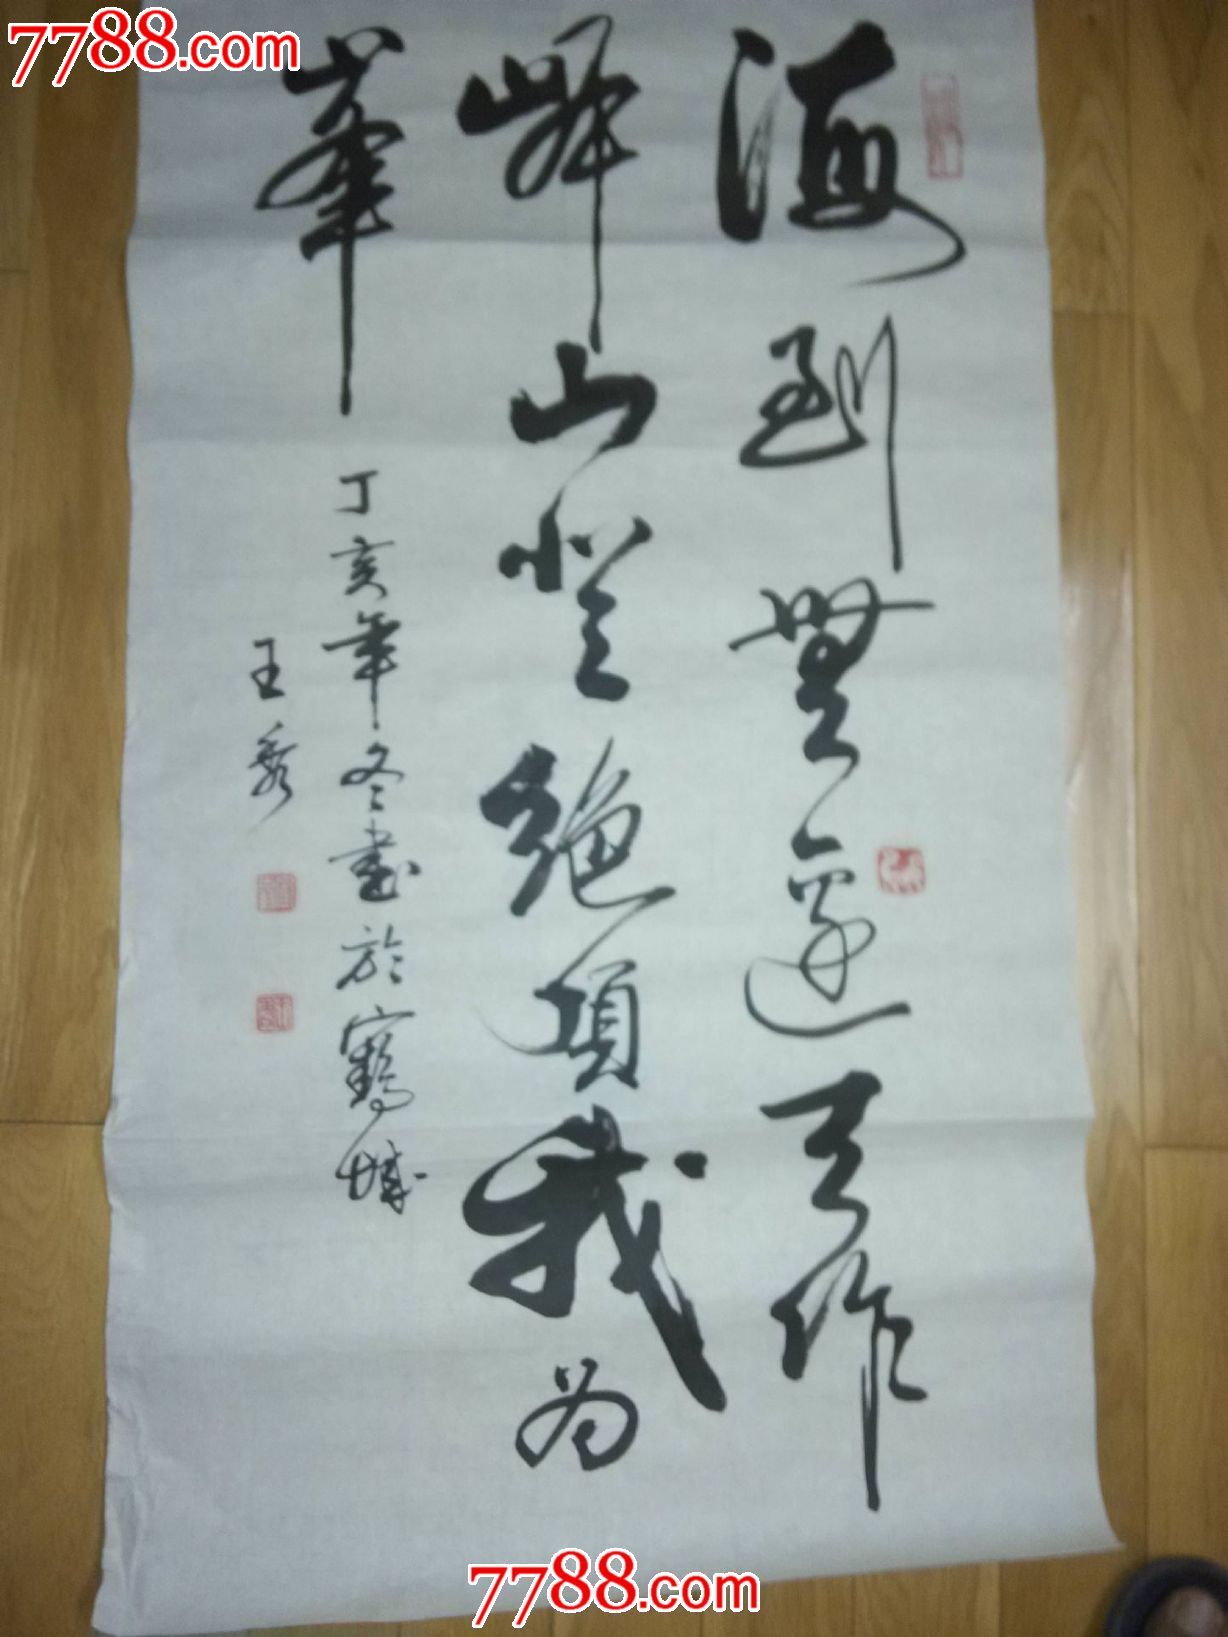 7788.com
海到無邊天作
岸山登絕頂我为
峯
丁亥年冬書於鶴城
王
7788.com